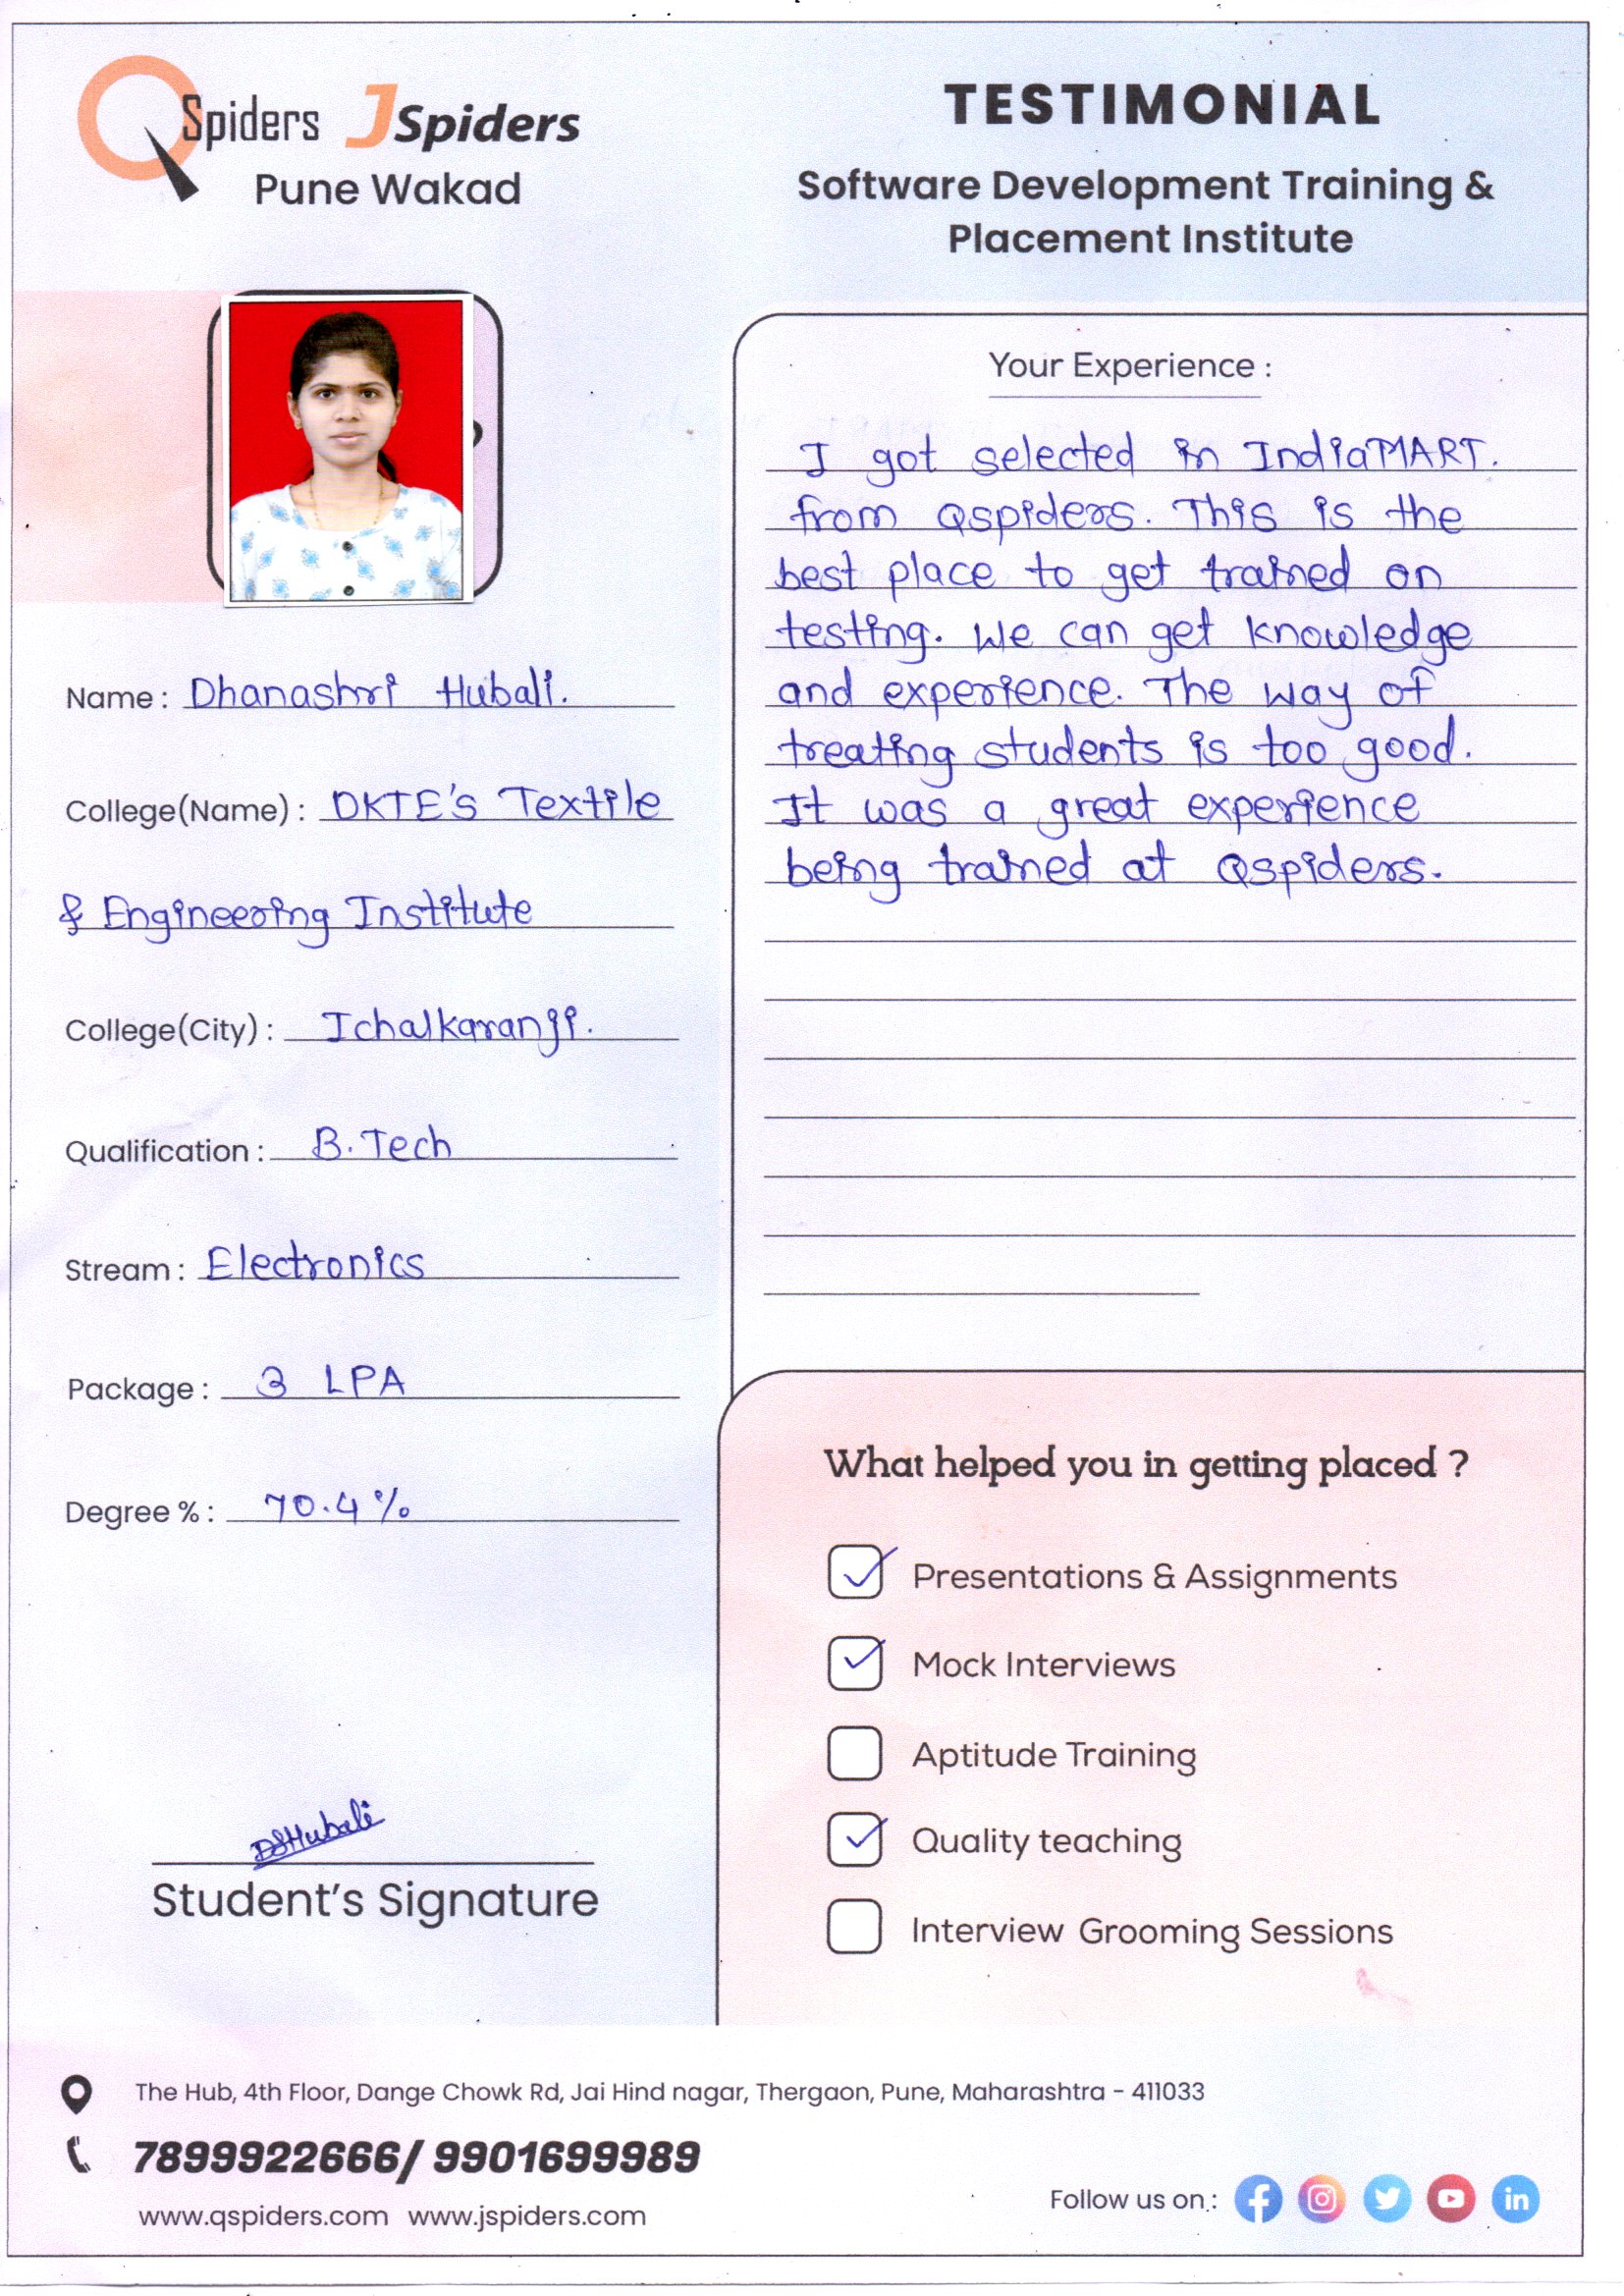 QSpiders JSpiders
Pune Wakad
TESTIMONIAL
Software Development Training &
Placement Institute
Name : Dhanashri Hubali.
College(Name) : DKTE's Textile
& Engineering Institute
College(City) : Ichalkaranji.
Qualification : B.Tech
Stream : Electronics
Package : 3 LPA
Degree % : 70.4 %
DSHubali
Student's Signature
Your Experience :
I got selected in IndiaMART.
from Qspiders. This is the
best place to get trained on
testing. We can get knowledge
and experience. The way of
treating students is too good.
It was a great experience
being trained at Qspiders.
What helped you in getting placed ?
Presentations & Assignments
Mock Interviews
Aptitude Training
Quality teaching
Interview Grooming Sessions
The Hub, 4th Floor, Dange Chowk Rd, Jai Hind nagar, Thergaon, Pune, Maharashtra - 411033
7899922666/ 9901699989
www.qspiders.com www.jspiders.com
Follow us on :